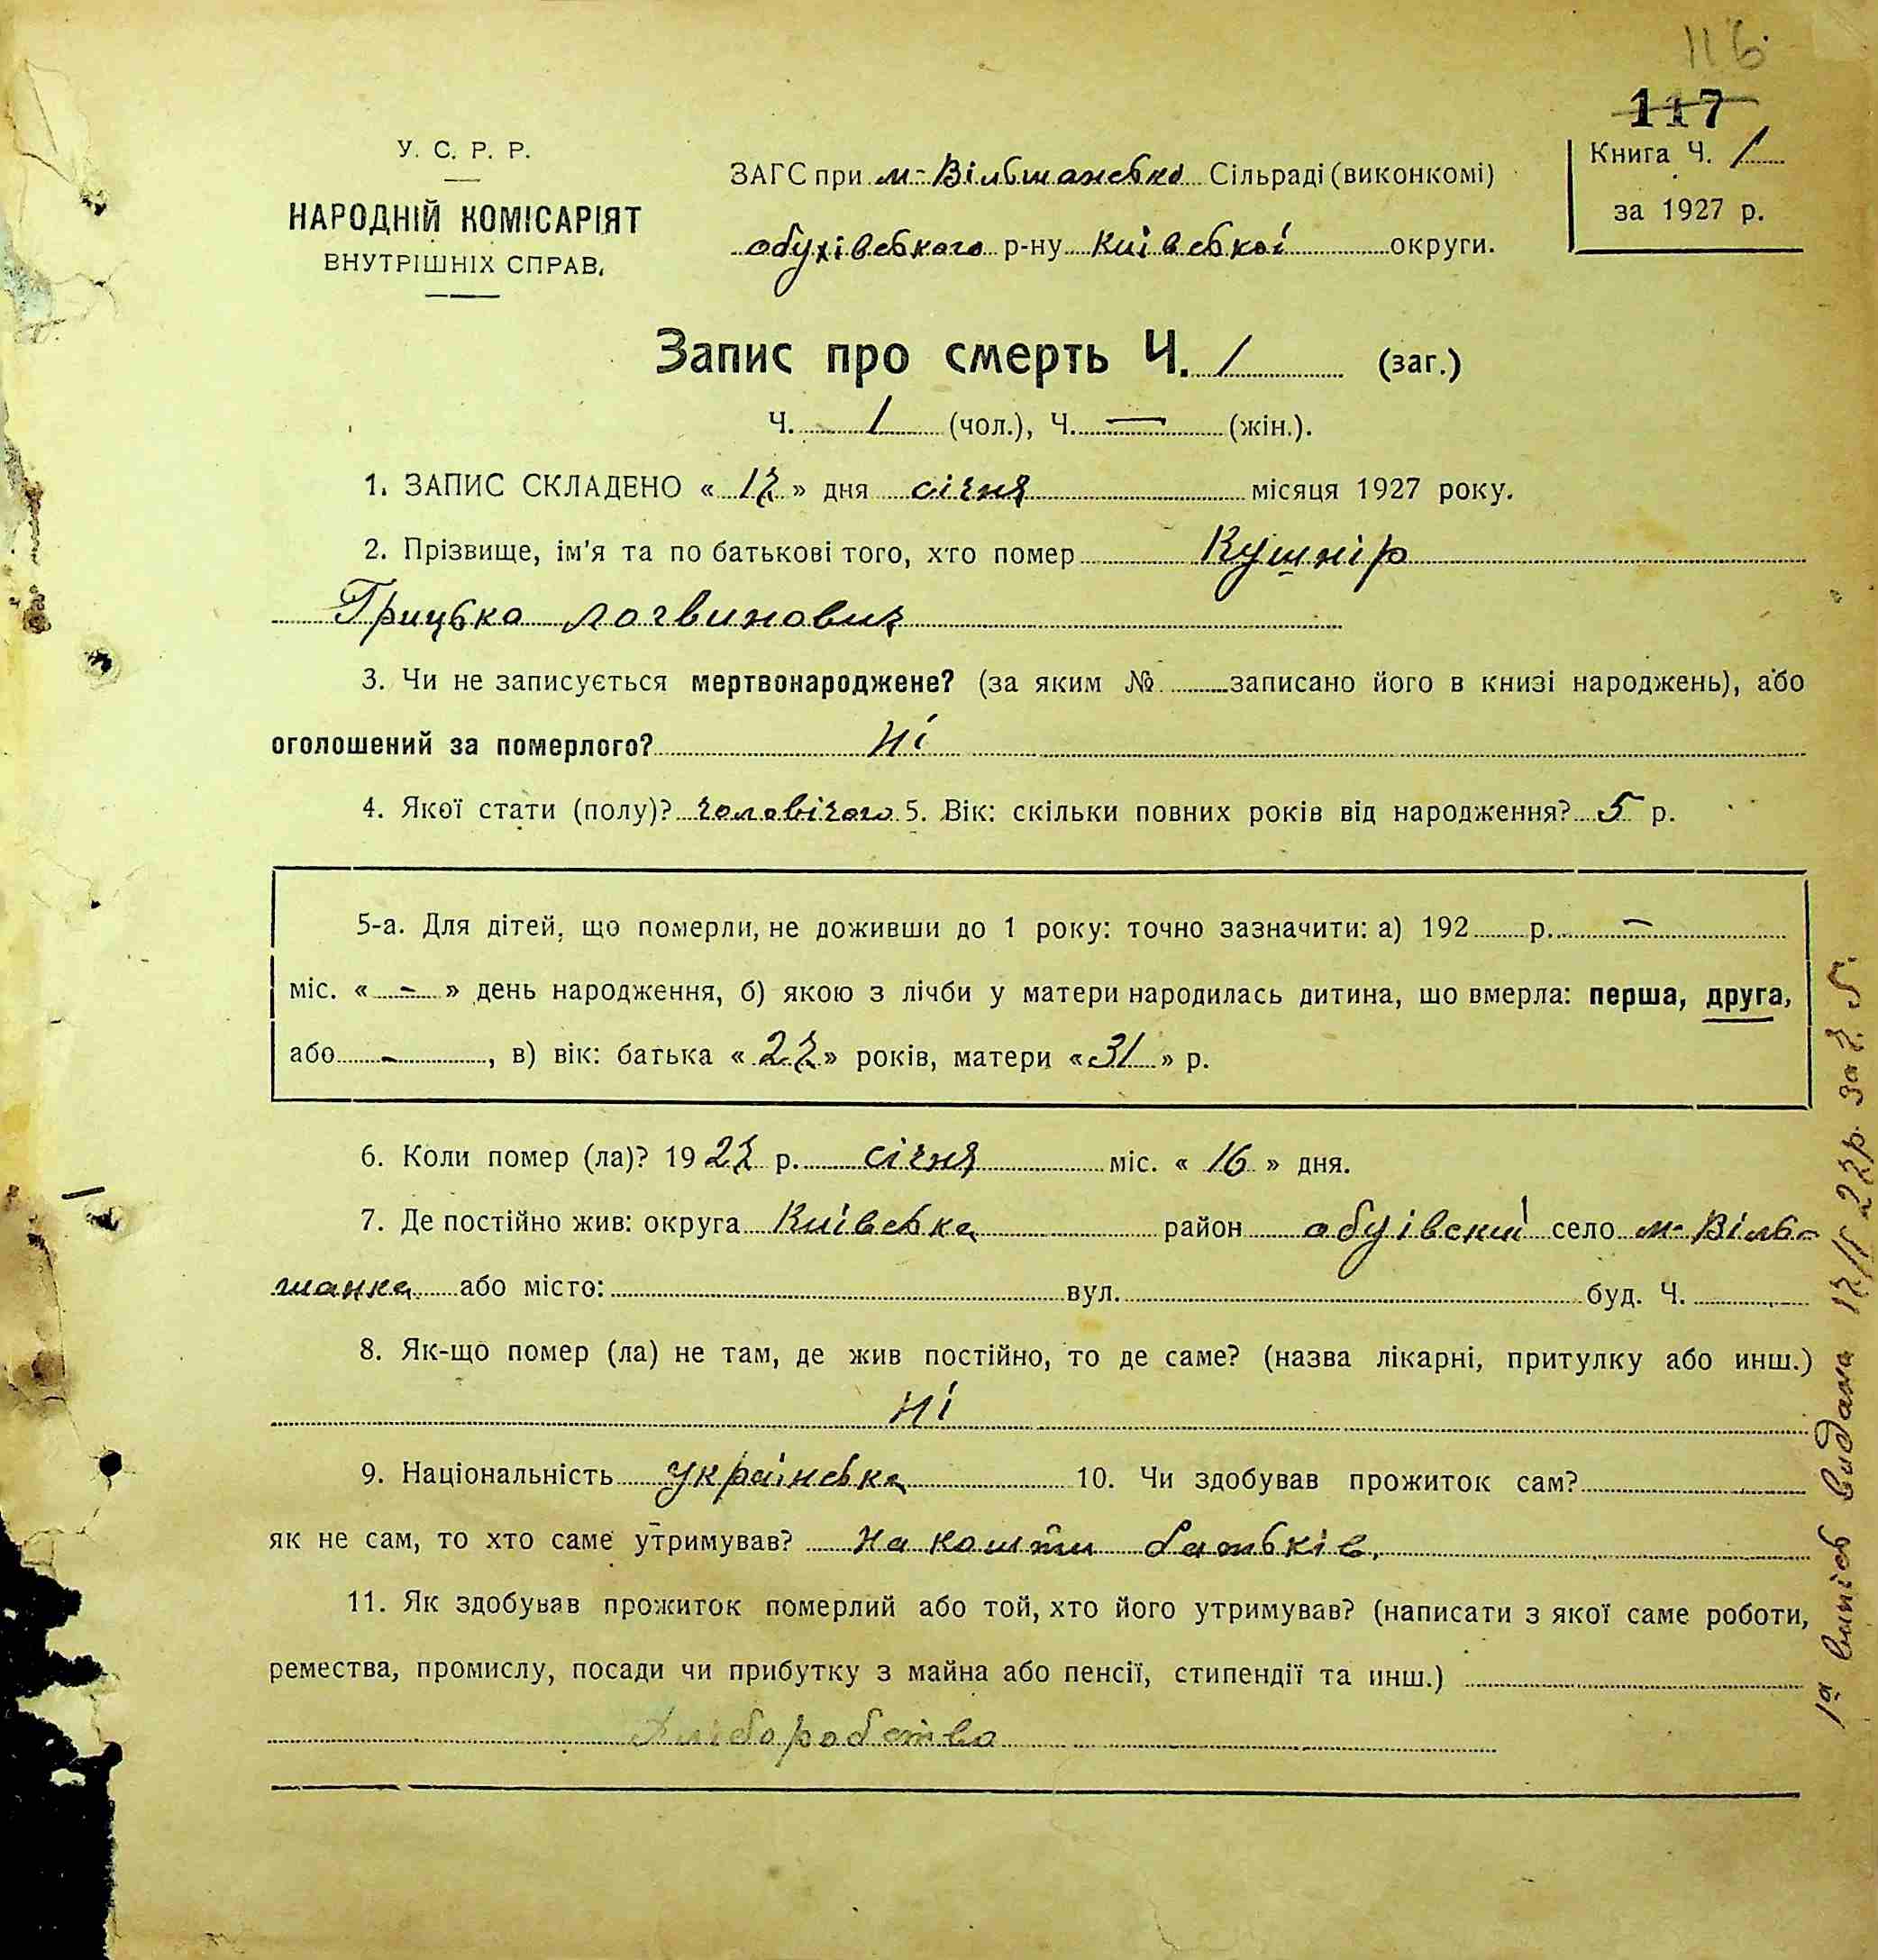 116
117
У. С. Р. Р.
НАРОДНІЙ КОМІСАРІЯТ
ВНУТРІШНІХ СПРАВ.
ЗАГС при м-Вільшанські Сільраді (виконкомі)
обухівського р-ну Київської округи.
Книга Ч. 1
за 1927 р.
Запис про смерть Ч. 1 (заг.)
Ч. 1 (чол.), Ч. — (жін.).
1. ЗАПИС СКЛАДЕНО « 17 » дня січня місяця 1927 року.
2. Прізвище, ім'я та по батькові того, хто помер Кушнір
Грицько логвинович
3. Чи не записується мертвонароджене? (за яким № записано його в книзі народжень), або
оголошений за померлого? Ні
4. Якої стати (полу)? чоловічого 5. Вік: скільки повних років від народження? 5 р.
5-а. Для дітей, що померли, не доживши до 1 року: точно зазначити: а) 192 р. —
міс. « — » день народження, б) якою з лічби у матери народилась дитина, що вмерла: перша, друга,
або -, в) вік: батька « 27 » років, матери « 31 » р.
6. Коли помер (ла)? 1927 р. січня міс. « 16 » дня.
7. Де постійно жив: округа Київська район обуівский село м-Віль-
шанка або місто: вул. буд. Ч.
8. Як-що помер (ла) не там, де жив постійно, то де саме? (назва лікарні, притулку або инш.)
Ні
9. Національність українська 10. Чи здобував прожиток сам?
як не сам, то хто саме утримував? На кошти батьків.
11. Як здобував прожиток померлий або той, хто його утримував? (написати з якої саме роботи,
ремества, промислу, посади чи прибутку з майна або пенсії, стипендії та инш.)
Хліборобство
1а випісь видана 17/I 27р. за ч. 5.